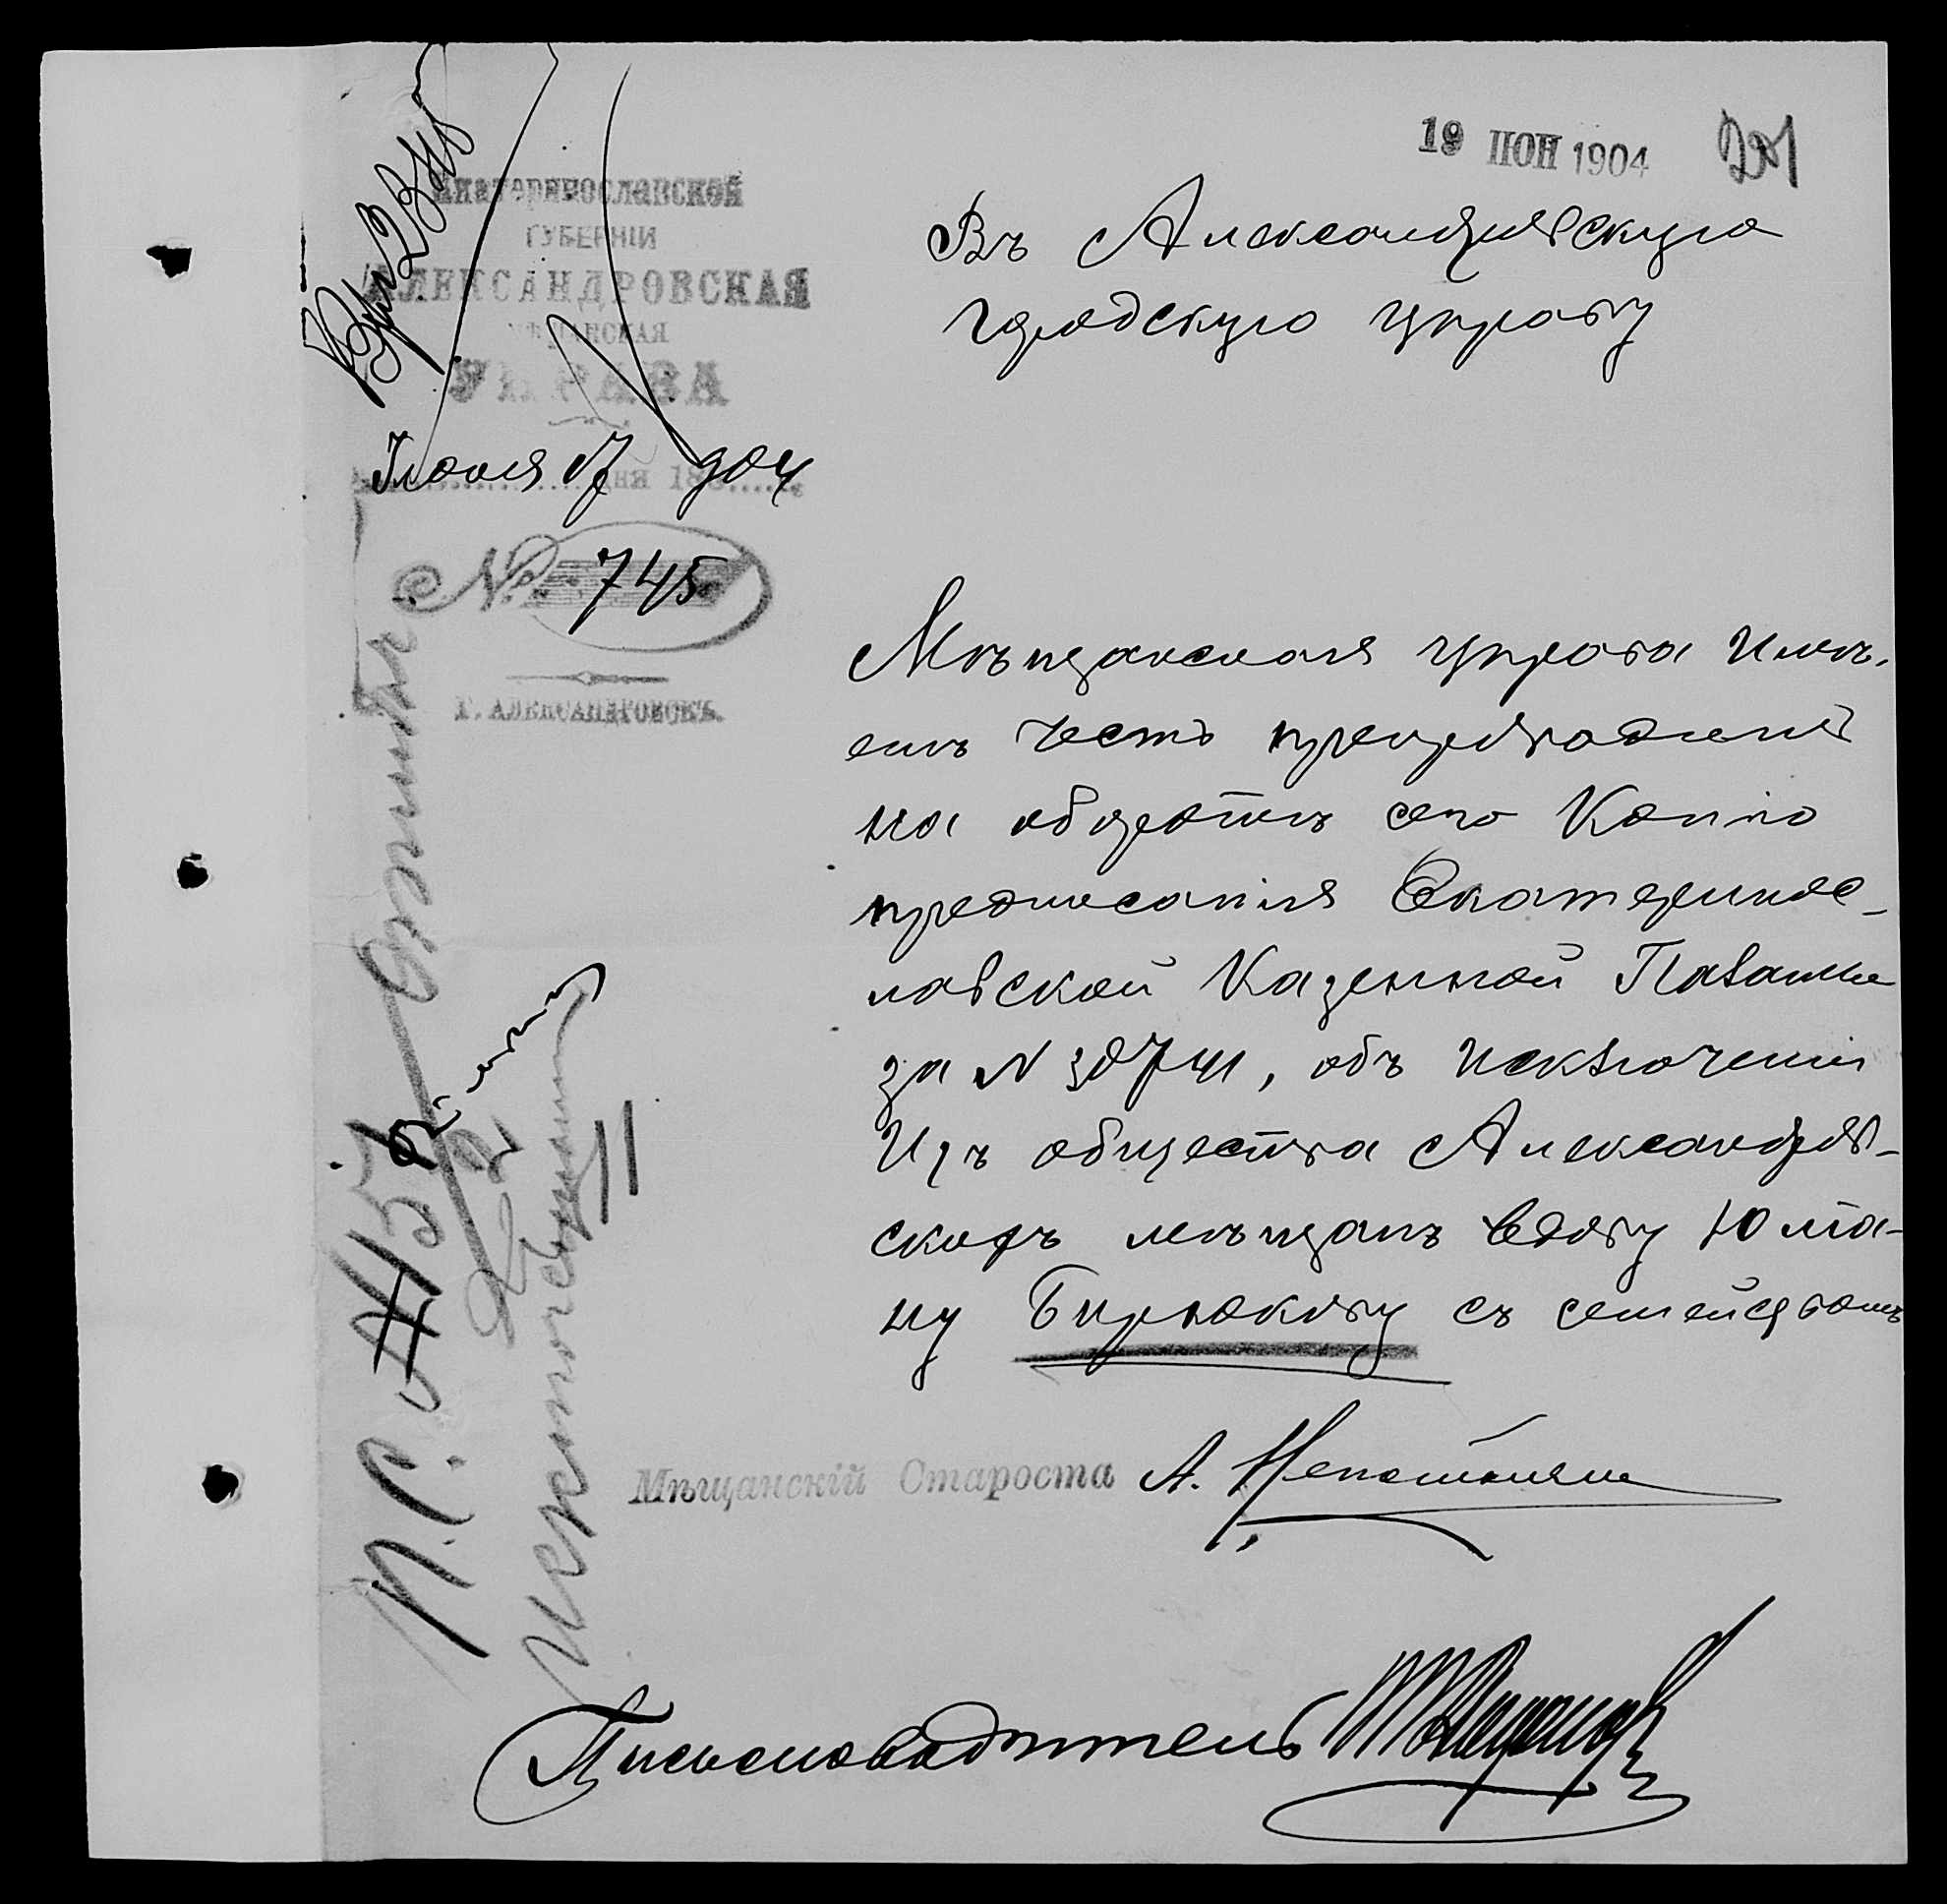 19 ІЮН 1904
Екатеринославской
ГУБЕРНІИ
АЛЕКСАНДРОВСКАЯ
МѢЩАНСКАЯ
УПРАВА
Іюня 17 дня 190 904
№ 745
Г. АЛЕКСАНДРОВСКЪ.
Въ Александровскую
городскую управу
Мѣщанская управа имѣ-
етъ честь препроводить
на оборотѣ сего копію
предписанія Екатеринос-
лавской Казенной Палаты
за № 30741, объ исключеніи
изъ общества Александров-
скихъ мѣщанъ вдову Юлiа-
ну Бирюкову съ семействомъ
Мѣщанскій Староста А.
Письмоводитель
П.С.